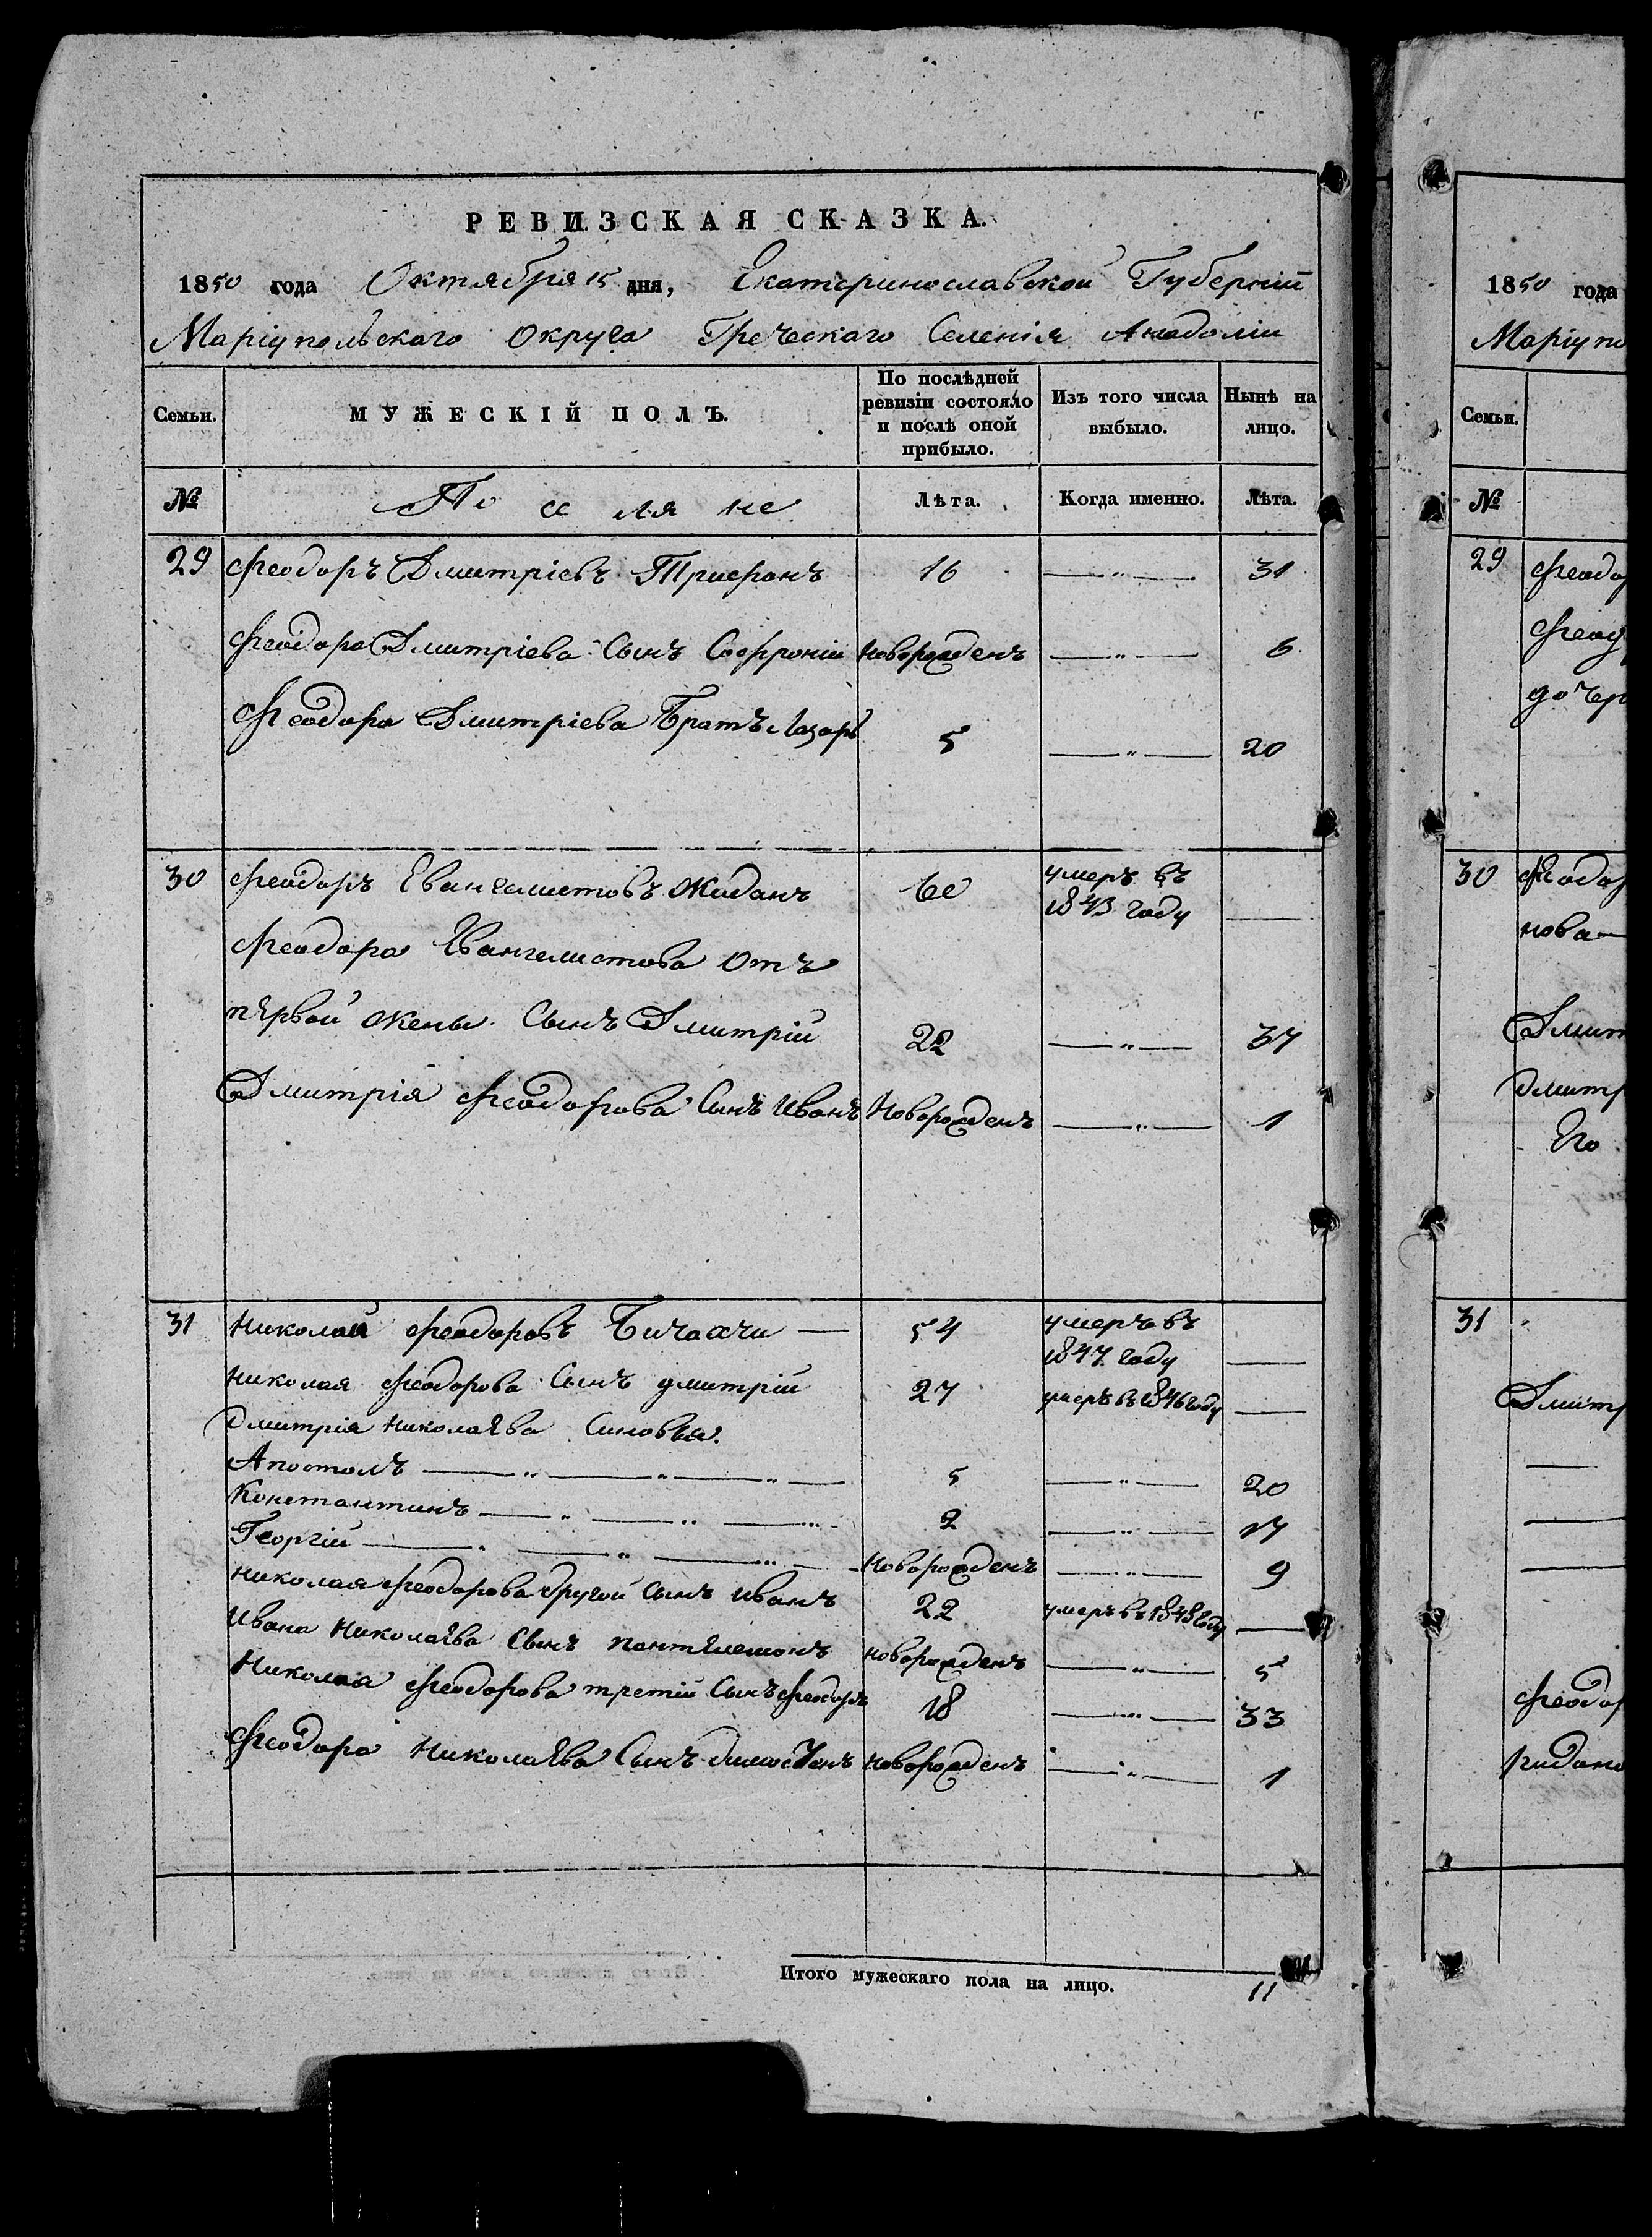 РЕВИЗСКАЯ СКАЗКА.
1850 года Октября 15 дня, Екатеринославской Губерніи
Маріупольскаго Округа Греческаго Селенія Анадоліи
Семьи. МУЖЕСКІЙ ПОЛЪ. По послѣдней ревизіи состояло и послѣ оной прибыло. Изъ того числа выбыло. Нынѣ на лицо.
№ Поселяне Лѣта. Когда именно. Лѣта.
29 Феодоръ Дмитріевъ Трифонъ 16 —„— 31
Феодора Дмитріева Сынъ Софроній новорожденъ —„— 6
Феодора Дмитріева Братъ Лазарь 5 —„— 20
30 Феодоръ Евангелистовъ Жиданъ умеръ въ 1843 году —
Феодора Евангелистова отъ
первой жены Сынъ Дмитрій 22 —„— 37
Дмитрія Феодорова Сынъ Иванъ Новорожденъ —„— 1
31 Николай Феодоровъ Бичахчи — 54 умеръ въ 1847 году —
Николая Феодорова Сынъ Дмитрій 27 умеръ въ 1846 году —
Дмитрія Николаева Синовья.
Апостолъ —„—„—„— 5 —„— 20
Константинъ —„—„—„ 2 —„— 17
Георгій —„—„—„— Новорожденъ —„— 9
Николая Феодорова другой Сынъ Иванъ 22 умеръ въ 1848 году —
Ивана Николаева Сынъ Пантелемонъ новорожденъ —„— 5
Николая Феодорова третій Сынъ Феодоръ 18 —„— 33
Феодора Николаева Сынъ новорожденъ —„— 1
Итого мужескаго пола на лицо. 11
1850 года
Маріупо
Семьи.
№
29 Феодор
Феод
дочер
30 Феодор
нова—
Дмит
Дмитр
Его
31
Дмитр
Феодор